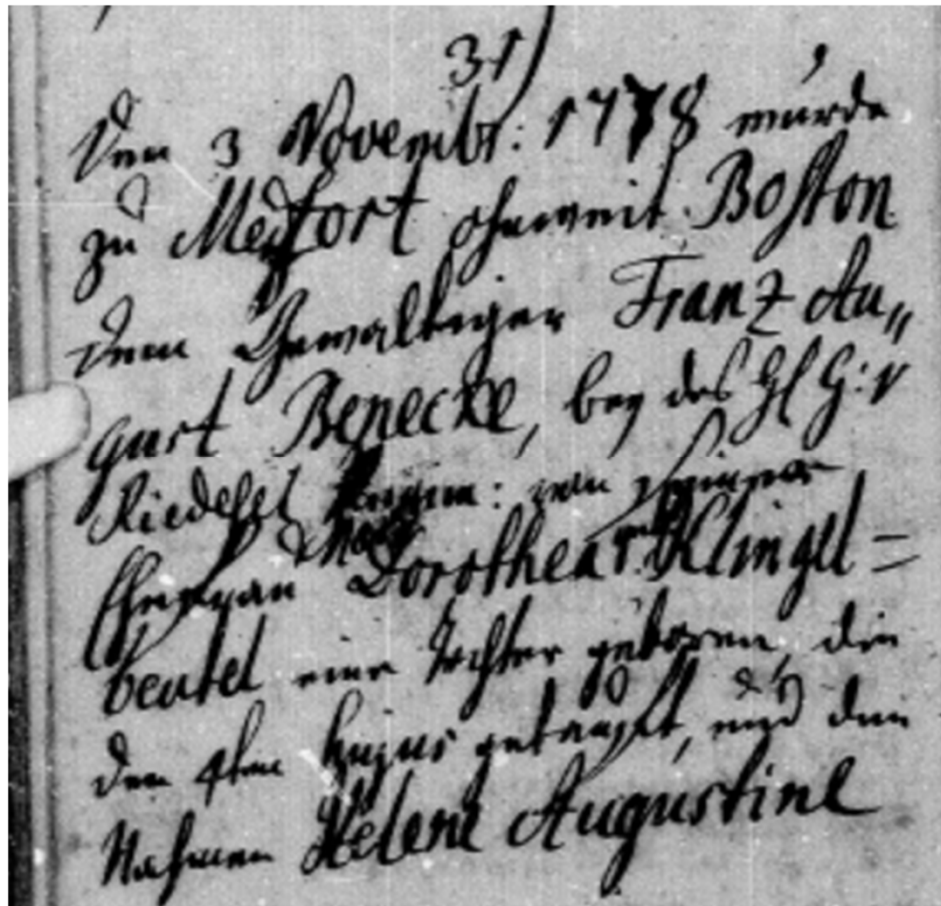 31)
Den 3 Novembr: 1778 wurde
zu Medfort ohnweit Boston
dem Gewaltiger Franz Au„
gust Benecke, bey des H G:
Riedesel von seiner
Ehefrau Mar Dorothea Klingel=
beutel eine Tochter geboren, die
den 4ten hujus getauft, und den
Nahmen Helene Augustine